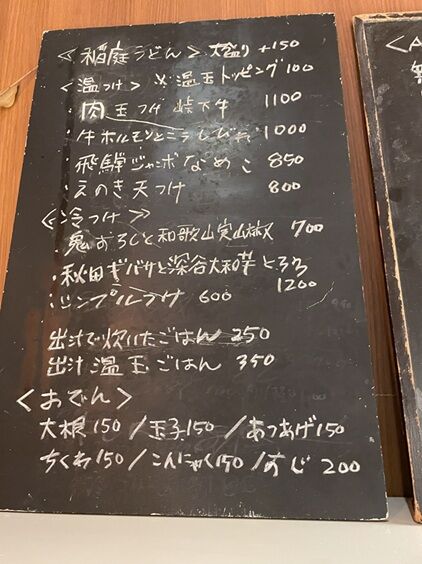 <稲庭うどん> 大盛り +150
<温つけ> ※温玉トッピング100
・肉玉つけ 峠下牛 1100
・牛ホルモンとニラしびれ 1000
・飛騨ジャンボなめこ 850
・えのき天つけ 800
<冷つけ>
・鬼おろしと和歌山実山椒 700
・秋田ギバサと深谷大和芋とろろ
1200
・シンプルつけ 600
出汁で炊いたごはん 250
出汁温玉ごはん 350
<おでん>
大根150/玉子150/あつあげ150
ちくわ150/こんにゃく150/すじ 200
<A